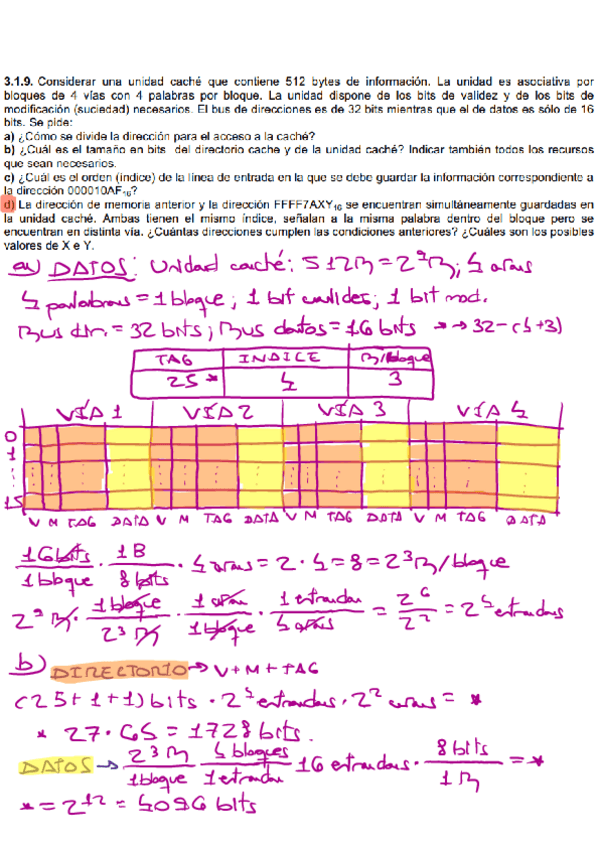 3.1.9. Considerar una unidad caché que contiene 512 bytes de información. La unidad es asociativa por
bloques de 4 vías con 4 palabras por bloque. La unidad dispone de los bits de validez y de los bits de
modificación (suciedad) necesarios. El bus de direcciones es de 32 bits mientras que el de datos es sólo de 16
bits. Se pide:
a) ¿Cómo se divide la dirección para el acceso a la caché?
b) ¿Cuál es el tamaño en bits del directorio cache y de la unidad caché? Indicar también todos los recursos
que sean necesarios.
c) ¿Cuál es el orden (índice) de la línea de entrada en la que se debe guardar la información correspondiente a
la dirección 000010AF₁₆?
d) La dirección de memoria anterior y la dirección FFFF7AXY₁₆ se encuentran simultáneamente guardadas en
la unidad caché. Ambas tienen el mismo índice, señalan a la misma palabra dentro del bloque pero se
encuentran en distinta vía. ¿Cuántas direcciones cumplen las condiciones anteriores? ¿Cuáles son los posibles
valores de X e Y.
a) DATOS: Unidad caché: 512B = 2⁹B; 4 vías
4 palabras = 1 bloque; 1 bit validez; 1 bit mod.
Bus dir. = 32 bits; Bus datos = 16 bits * → 32-(4+3)
TAG INDICE B/bloque
25 * 4 3
VÍA 1 VÍA 2 VÍA 3 VÍA 4
0
1
⋮
15
V M TAG DATA V M TAG DATA V M TAG DATA V M TAG DATA
16 bits / 1 bloque · 1B / 8 bits · 4 vías = 2 · 4 = 8 = 2³ B/bloque
2⁹ B · 1 bloque / 2³ B · 1 vía / 1 bloque · 1 entrada / 4 vías = 2⁶ / 2² = 2⁴ entradas
b) DIRECTORIO → V + M + TAG
(25 + 1 + 1) bits · 2⁴ entradas · 2² vías = *
* 27 · 64 = 1728 bits.
DATOS → 2³ B / 1 bloque 4 bloques / 1 entrada 16 entradas · 8 bits / 1 B = *
* = 2¹² = 4096 bits